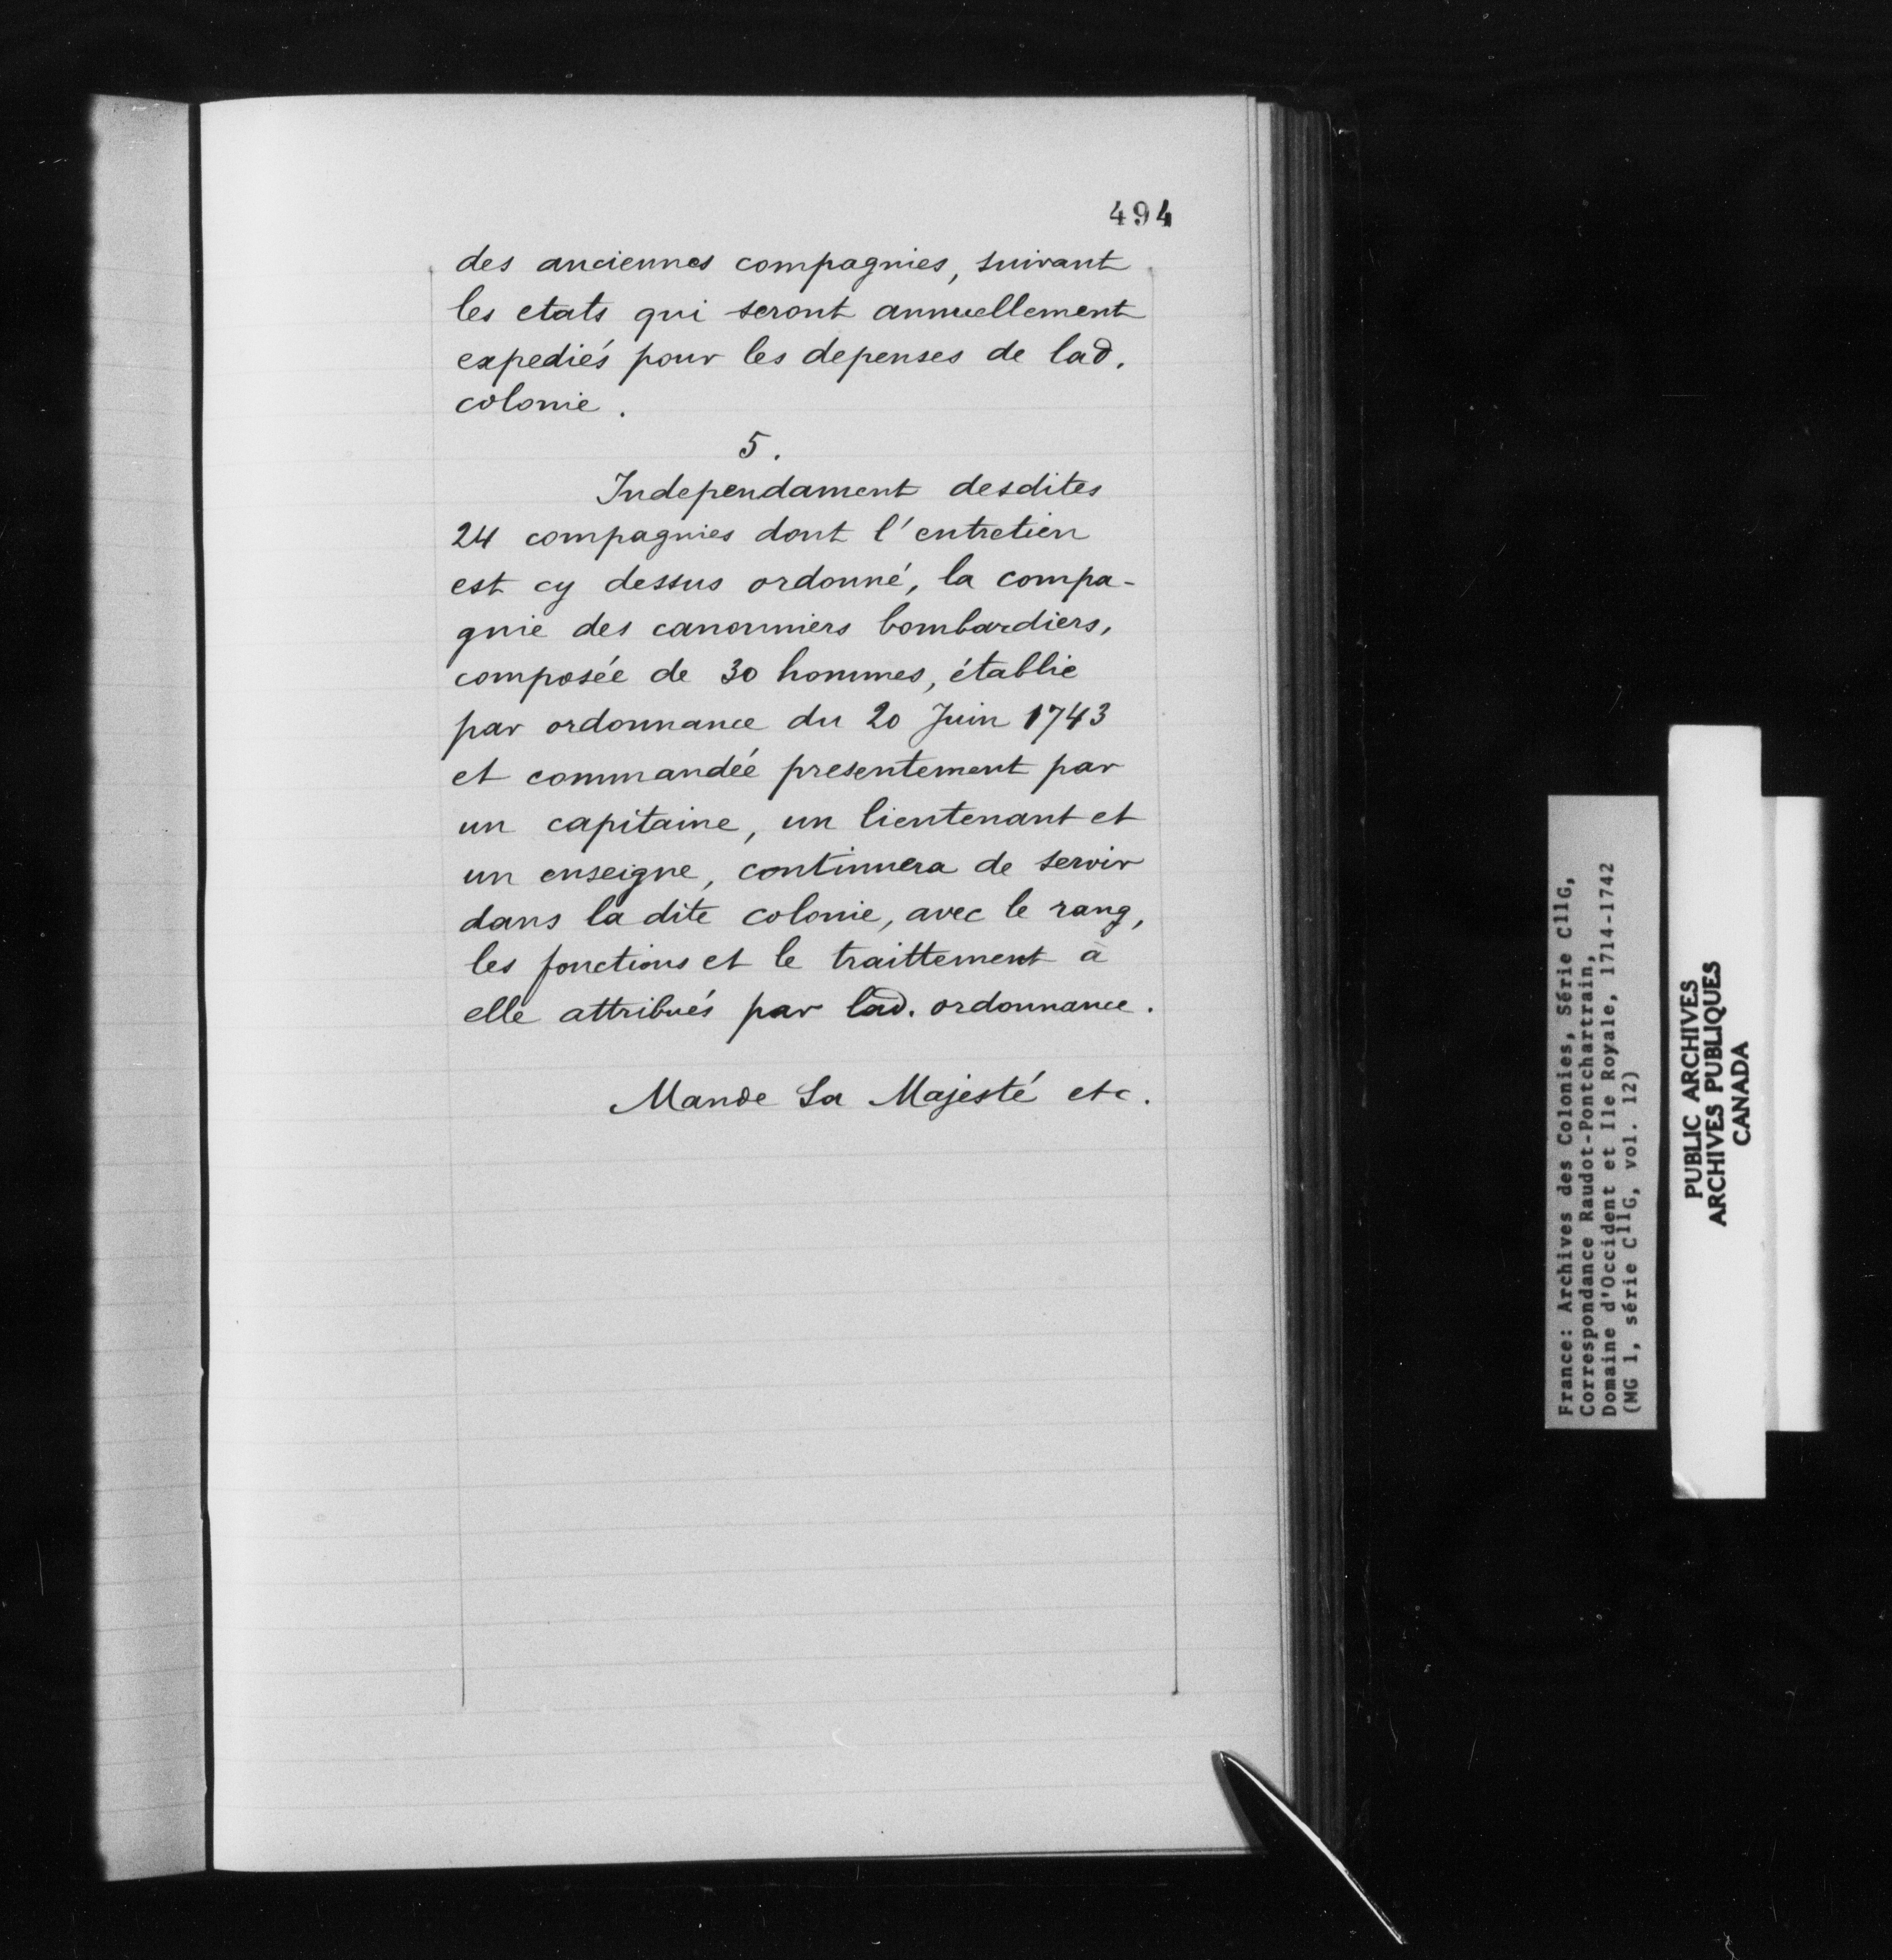 494
des anciennes compagnies, suivant
les etats qui seront annuellement
expediés pour les depenses de lad.
colonie.
5.
Independament desdites
24 compagnies dont l'entretien
est cy dessus ordonné, la compa-
gnie des canonniers bombardiers,
composée de 30 hommes, établie
par ordonnance du 20 Juin 1743
et commandée presentement par
un capitaine, un lieutenant et
un enseigne, continuera de servir
dans la dite colonie, avec le rang,
les fonctions et le traittement à
elle attribués par lad. ordonnance.
Mande Sa Majesté etc.
France: Archives des Colonies, Série C11G,
Correspondance Raudot-Pontchartrain,
Domaine d'Occident et Ile Royale, 1714-1742
(MG 1, série C11G, vol. 12)
PUBLIC ARCHIVES
ARCHIVES PUBLIQUES
CANADA